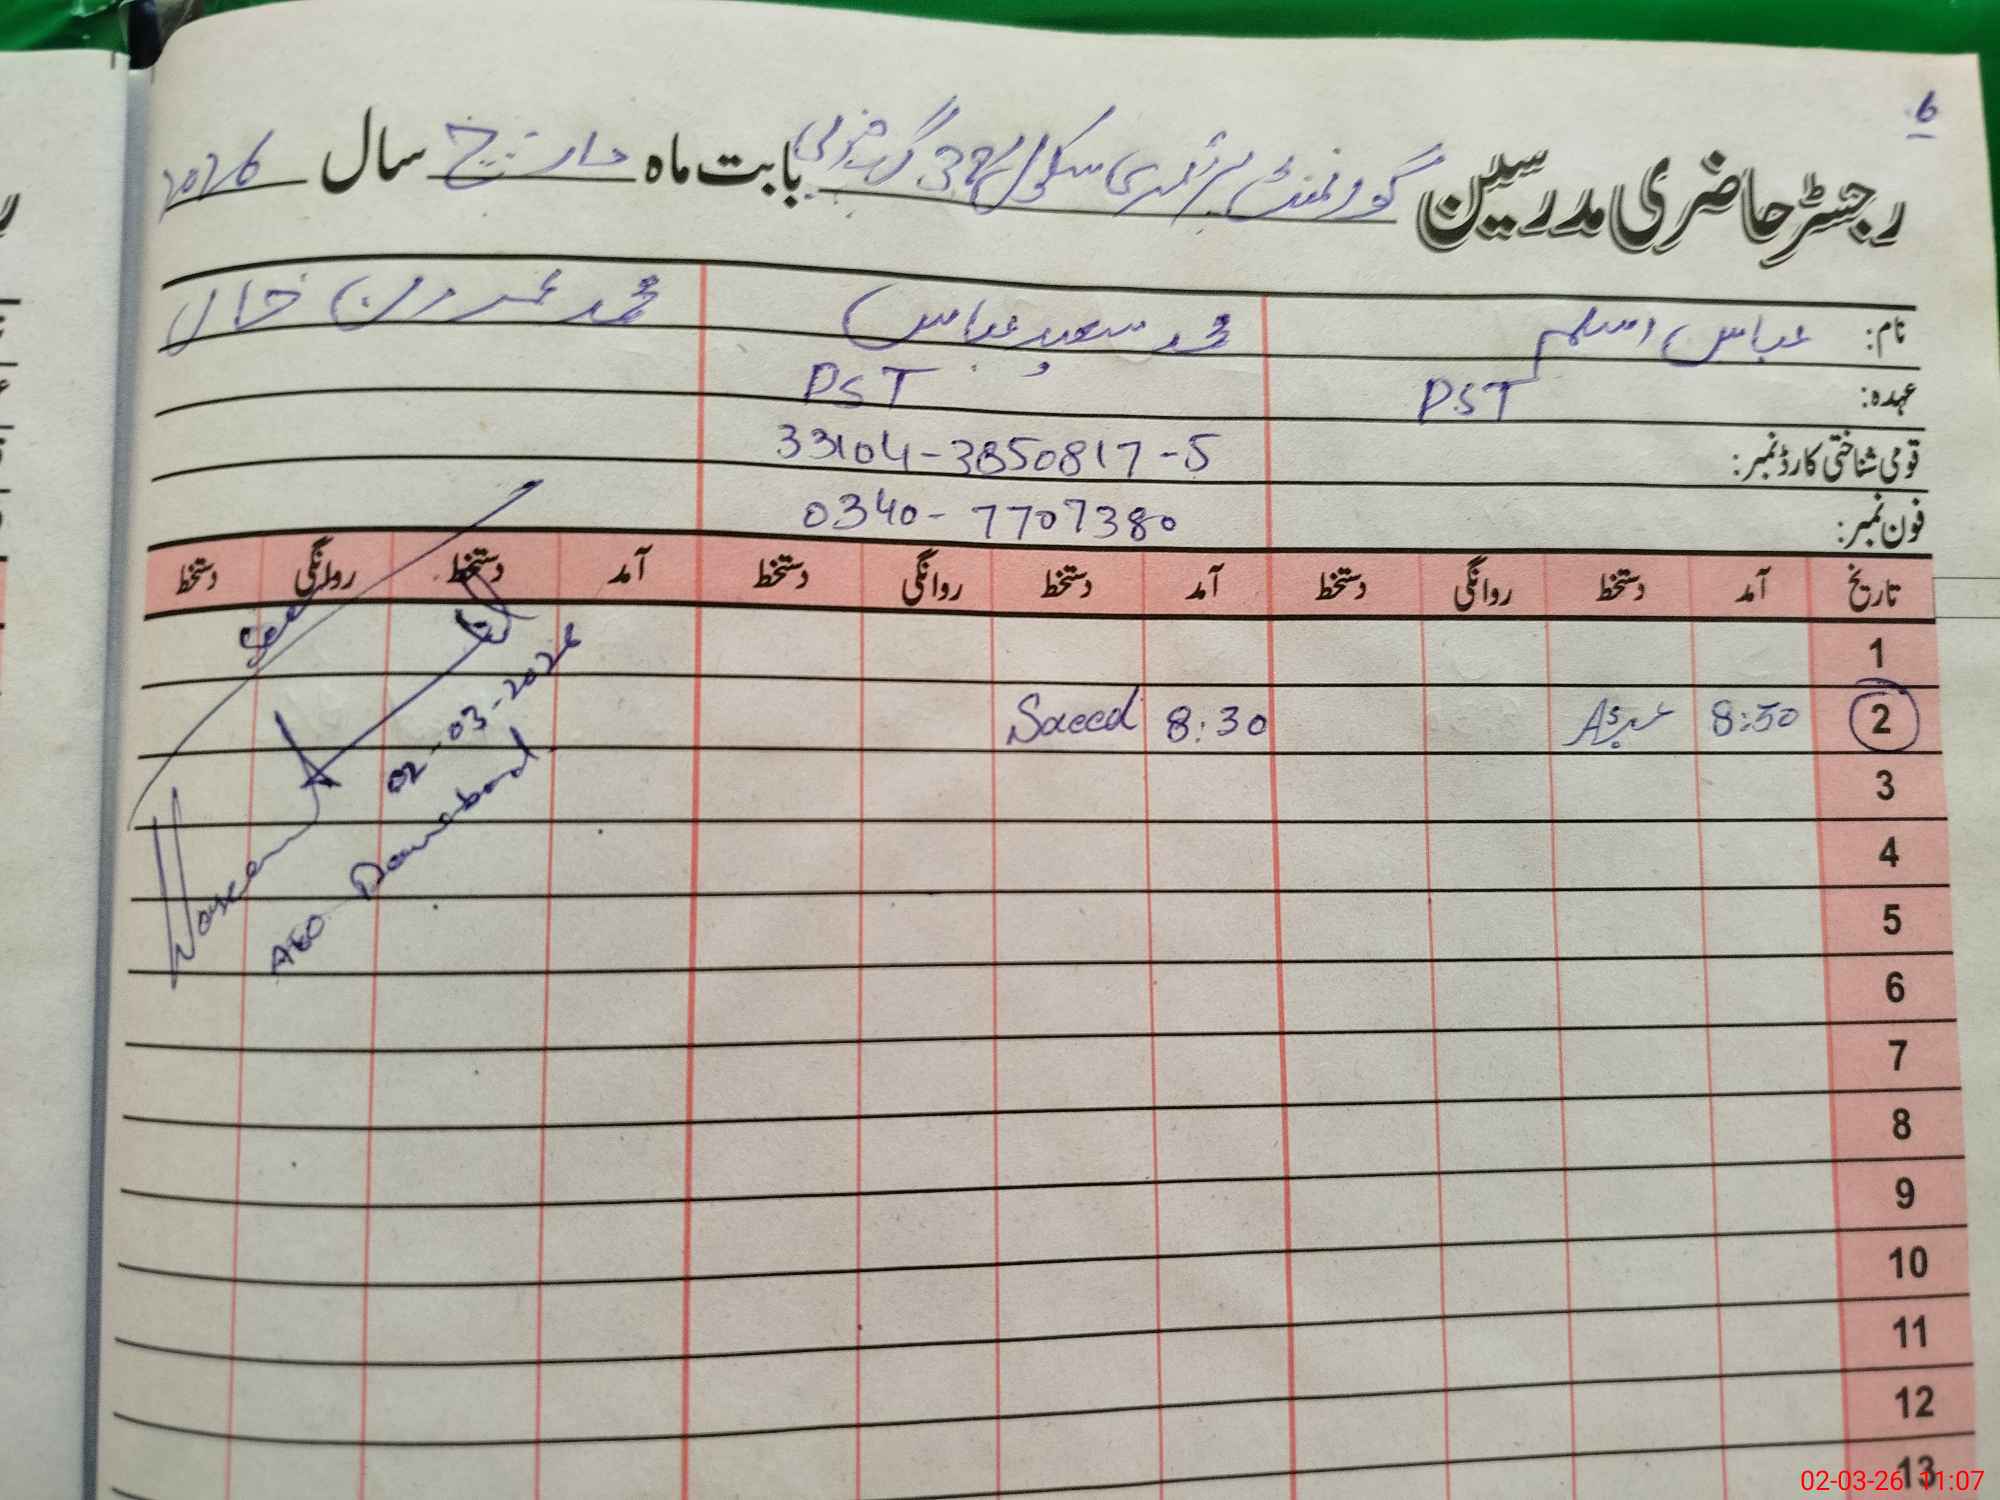 6
رجسٹر حاضری مدرسین گورنمنٹ پرائمری سکول 38 گ ب بابت ماہ مارچ سال 2026
نام: عباس اسلم محمد سعید عباس محمد
عہدہ: PST PST
قومی شناختی کارڈ نمبر: 33104-3850817-5
فون نمبر: 0340-7707380
تاریخ آمد دستخط روانگی دستخط آمد دستخط روانگی دستخط آمد دستخط روانگی دستخط
1
2 8:30 Saeed 8:30
3
4
5
6
7
8
9
10
11
12
13
Seen
02-03-2026
AEO
02-03-26 11:07